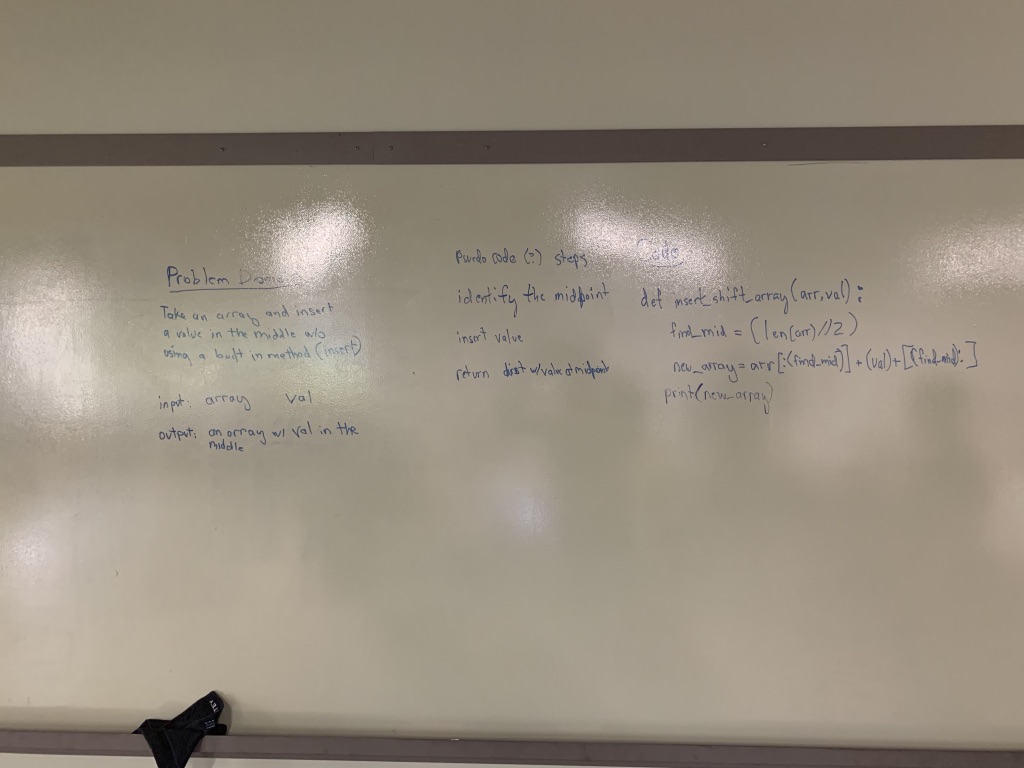 Problem Doma
Take an array and insert
a value in the middle w/o
using a built in method (insert)
input: array val
output: an array w/ val in the
middle
code (?) steps
identify the midpoint
insert value
return w/ value at midpoint
Code
def insert_shift_array(arr,val):
find_mid = (len(arr)//2)
new_array = arr[:(find_mid)] + (val) + [(find_mid): ]
print(new_array)